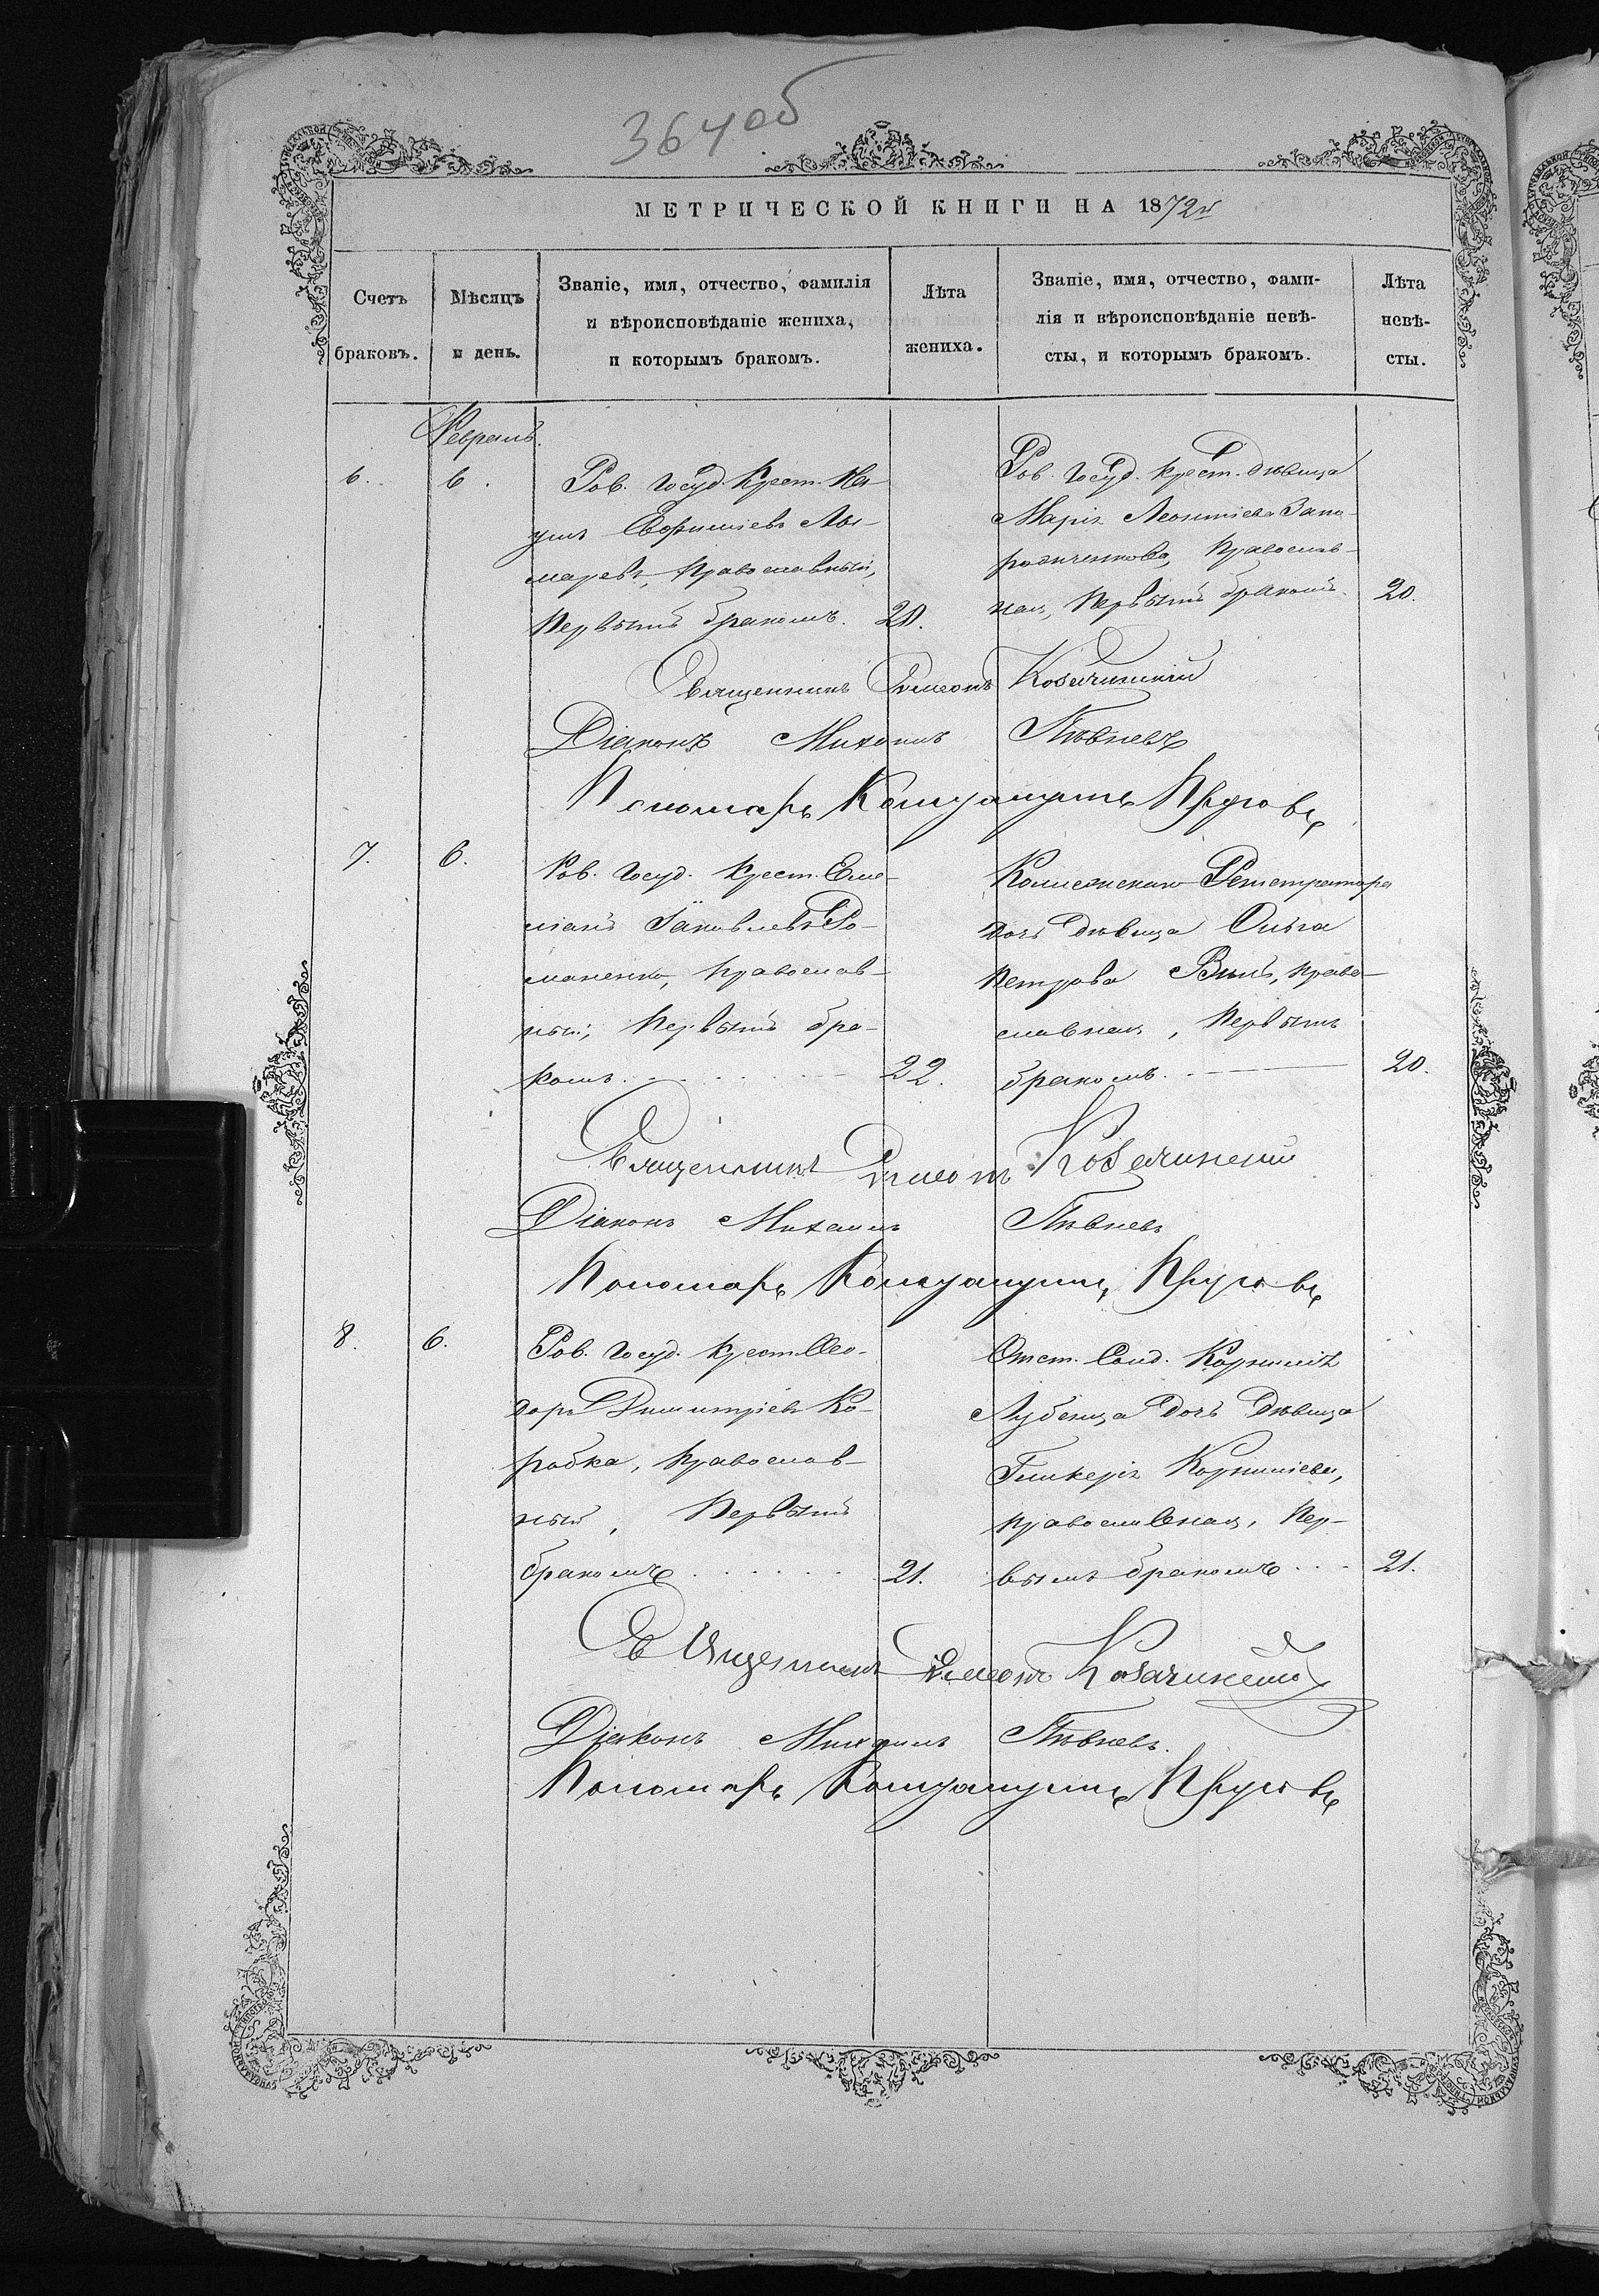 364об
МЕТРИЧЕСКОЙ КНИГИ НА 1872 г
Счетъ браковъ.
Мѣсяцъ и день.
Званіе, имя, отчество, фамилія
и вѣроисповѣданіе жениха,
и которымъ бракомъ.
Лѣта жениха.
Званіе, имя, отчество, фами-
лія и вѣроисповѣданіе невѣ-
сты, и которымъ бракомъ.
Лѣта невѣ-
сты.
Февраль.
6. 6.
Ров. Госуд. Крест. На-
умъ Евфиміевъ
маревъ, Православный,
Первымъ бракомъ. 20.
Ров. Госуд. Крест. дѣвица
Марія Леонтіева Запо-
рожченкова, Православ-
ная, Первымъ бракомъ. 20.
Священникъ Симеонъ Козачинскій
Діаконъ Михаилъ Пѣвневъ
Пономарь Прусовъ
7. 6.
Ров. Госуд. Крест. Еме-
ліанъ Іаковлевъ Ро-
маненко, Православ-
ный, Первымъ бра-
комъ. 22.
Коллежскаго Регистратора
дочь дѣвица Ольга
Петрова Право-
славная, Первымъ
бракомъ. 20.
Священникъ Симеонъ Козачинскій
Діаконъ Михаилъ Пѣвневъ
Пономарь Прусовъ
8. 6.
Ров. Госуд. Крест. Ѳео-
доръ Димитріевъ Ко-
робка, Православ-
ный, Первымъ
бракомъ 21.
Отст. Солд. Корнилія
Лубенца дочь дѣвица
Гликерія Корниліева,
Православная, Пер-
вымъ бракомъ 21.
Священникъ Симеонъ Козачинскій
Діаконъ Михаилъ Пѣвневъ.
Пономарь Прусовъ